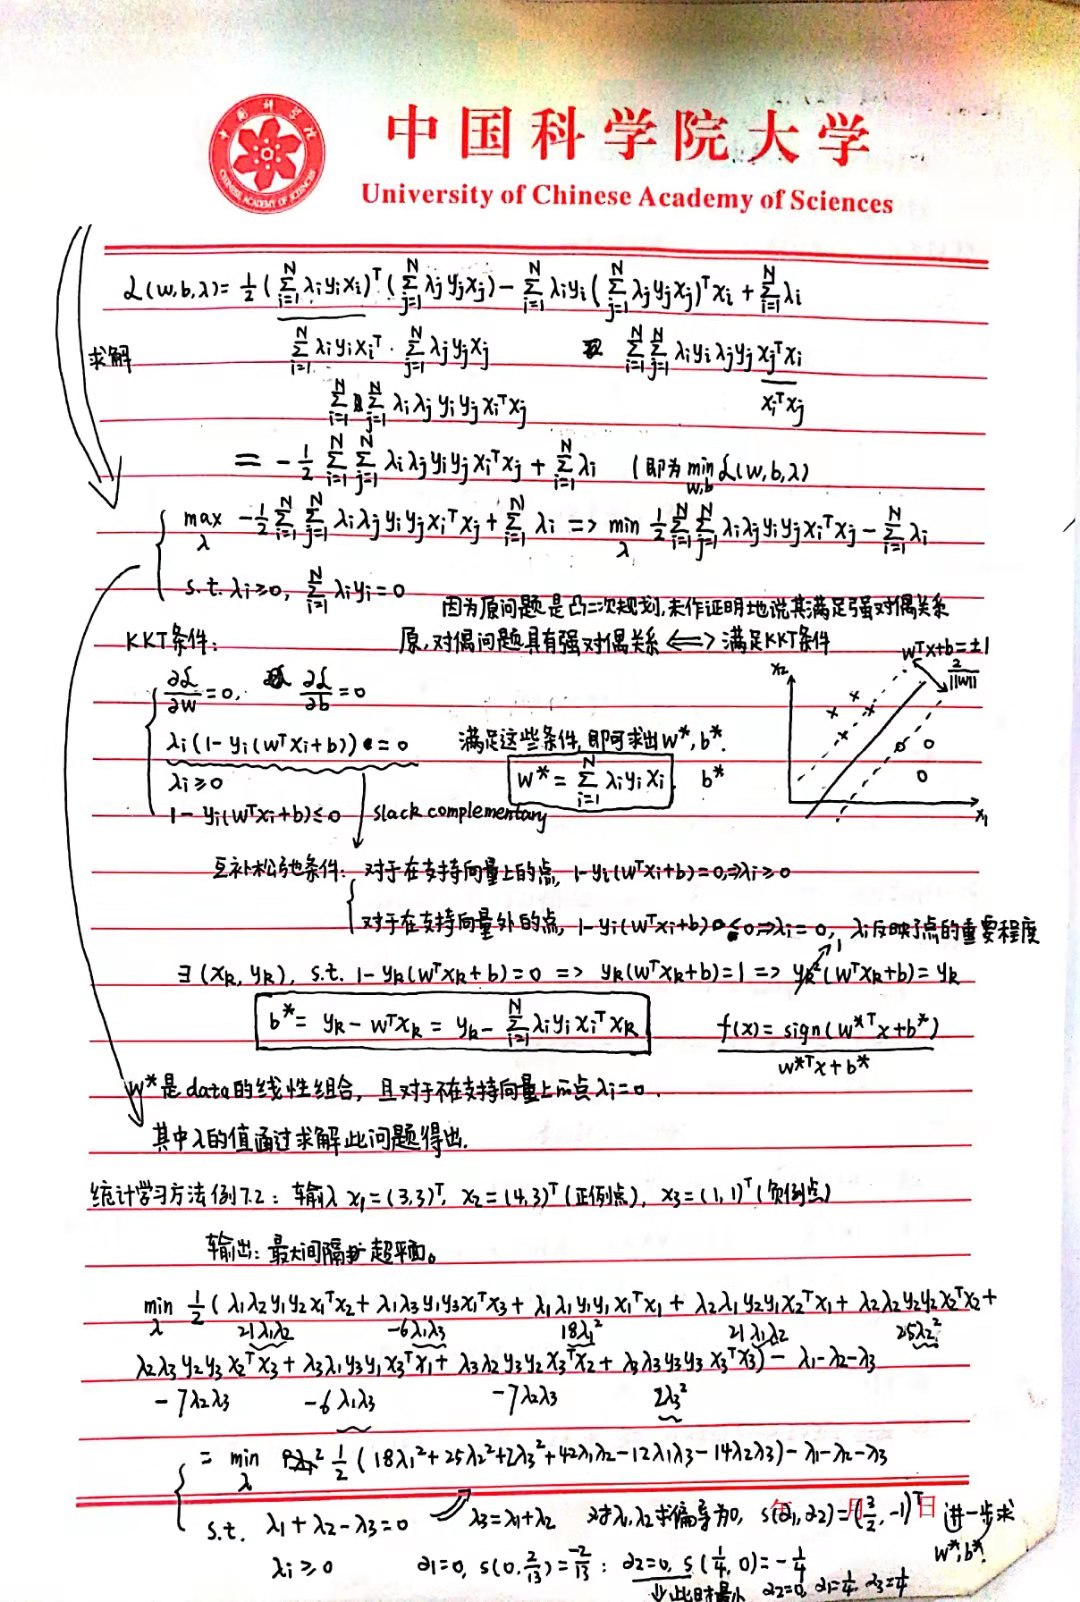 中国科学院大学
University of Chinese Academy of Sciences
中国科学院
CHINESE ACADEMY OF SCIENCES
L(w,b,λ)= 1/2 (∑_{i=1}^{N} λiyixi)ᵀ (∑_{j=1}^{N} λjyjxj) − ∑_{i=1}^{N} λiyi (∑_{j=1}^{N} λjyjxj)ᵀxi + ∑_{i=1}^{N} λi
求解 ∑_{i=1}^{N} λiyixiᵀ · ∑_{j=1}^{N} λjyjxj ∑_{i=1}^{N} ∑_{j=1}^{N} λiyiλjyjxjᵀxi
∑_{i=1}^{N} ∑_{j=1}^{N} λiλjyiyjxiᵀxj xiᵀxj
= − 1/2 ∑_{i=1}^{N} ∑_{j=1}^{N} λiλjyiyjxiᵀxj + ∑_{i=1}^{N} λi (即为 min_{w,b} L(w,b,λ))
max_λ −1/2 ∑_{i=1}^{N} ∑_{j=1}^{N} λiλjyiyjxiᵀxj + ∑_{i=1}^{N} λi => min_λ 1/2 ∑_{i=1}^{N} ∑_{j=1}^{N} λiλjyiyjxiᵀxj − ∑_{i=1}^{N} λi
s.t. λi≥0, ∑_{i=1}^{N} λiyi=0
因为原问题是凸二次规划,未作证明地说其满足强对偶关系
KKT条件: 原,对偶问题具有强对偶关系 <=> 满足KKT条件
∂L/∂w =0, ∂L/∂b =0
wᵀx+b=±1
2/||w||
x2
λi(1−yi(wᵀxi+b))=0 满足这些条件,即可求出w*,b*.
λi≥0 w* = ∑_{i=1}^{N} λiyixi, b*
1−yi(wᵀxi+b)≤0 slack complementary
x1
互补松弛条件: 对于在支持向量上的点, 1−yi(wᵀxi+b)=0,=>λi≥0
对于在支持向量外的点, 1−yi(wᵀxi+b)≤0=>λi=0, λi反映了点的重要程度
∃(xk,yk), s.t. 1−yk(wᵀxk+b)=0 => yk(wᵀxk+b)=1 => yk²(wᵀxk+b)=yk
1
b* = yk−wᵀxk = yk− ∑_{i=1}^{N} λiyixiᵀxk f(x)=sign(w*ᵀx+b*)
w*ᵀx+b*
w*是data的线性组合, 且对于不在支持向量上的点λi=0.
其中λ的值通过求解此问题得出.
统计学习方法例7.2: 输入 x1=(3,3)ᵀ, x2=(4,3)ᵀ(正例点), x3=(1,1)ᵀ(负例点)
输出: 最大间隔超平面。
min_λ 1/2 (λ1λ2y1y2x1ᵀx2+λ1λ3y1y3x1ᵀx3+λ1λ1y1y1x1ᵀx1+λ2λ1y2y1x2ᵀx1+λ2λ2y2y2x2ᵀx2+
21λ1λ2 −6λ1λ3 18λ1² 21λ1λ2 25λ2²
λ2λ3y2y3x2ᵀx3+λ3λ1y3y1x3ᵀx1+λ3λ2y3y2x3ᵀx2+λ3λ3y3y3x3ᵀx3)−λ1−λ2−λ3
−7λ2λ3 −6λ1λ3 −7λ2λ3 2λ3²
= min_λ 1/2 (18λ1²+25λ2²+2λ3²+42λ1λ2−12λ1λ3−14λ2λ3)−λ1−λ2−λ3
年 月 日
s.t. λ1+λ2−λ3=0 λ3=λ1+λ2 对λ1,λ2求偏导为0, s(α1,α2)=(3/2,−1)ᵀ 进一步求
w*,b*.
λi≥0 α1=0, s(0,2/13)=−2/13; α2=0, s(1/4,0)=−1/4
此时最小 α2=0, α1=1/4 α3=1/4